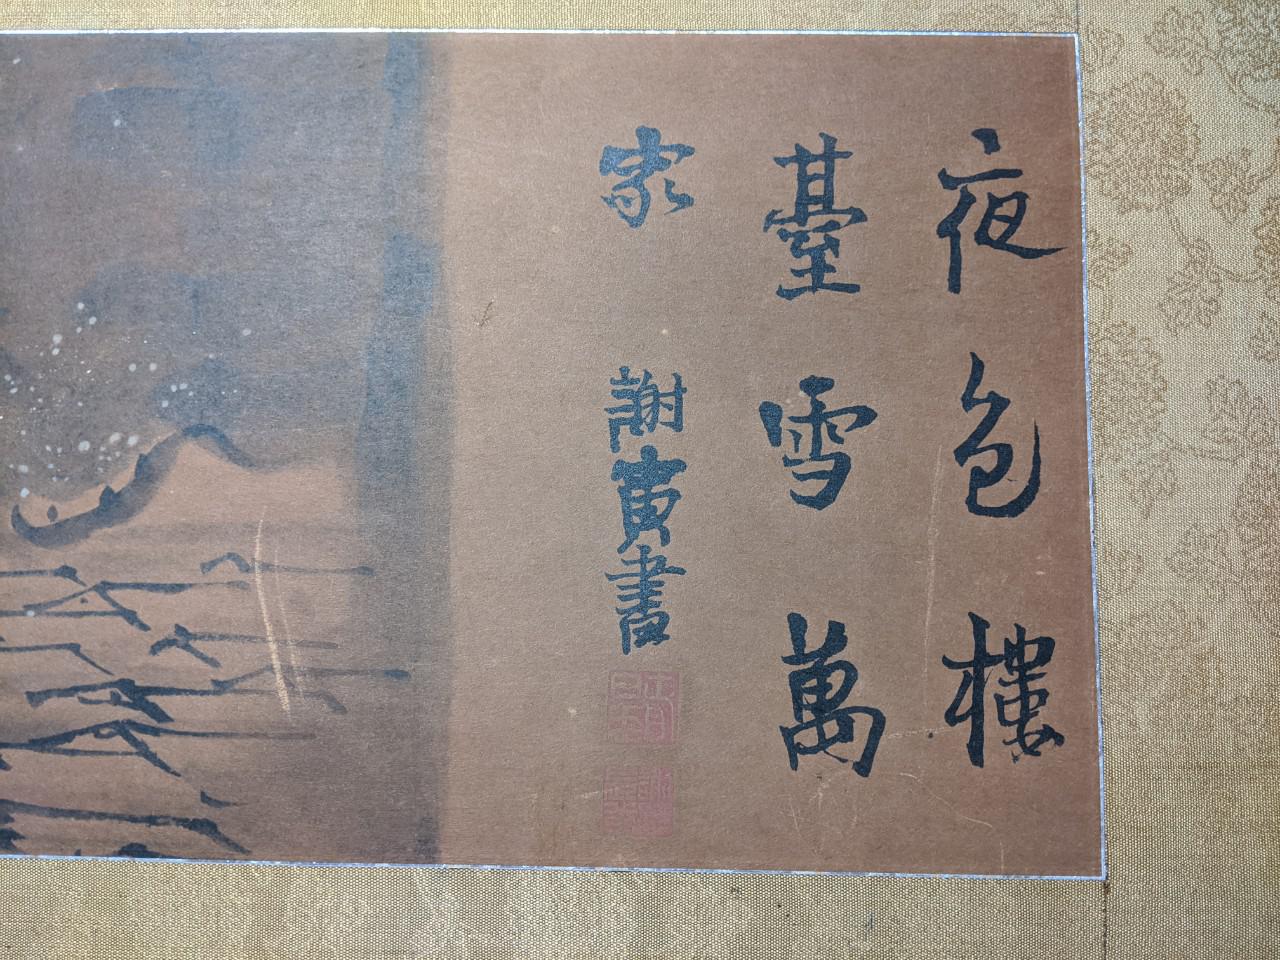 夜色樓
臺雪萬
家 謝寅書